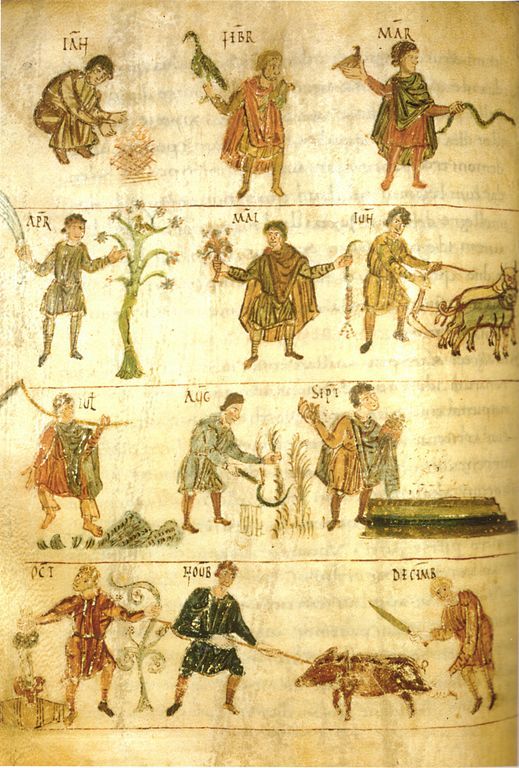 IAN̄
FEB̄R
MĀR
AP̄R
MĀI
IUN̄
IUL̄
AUḠ
SEP̄T
OCT
NOUB̄
DECEM̄B